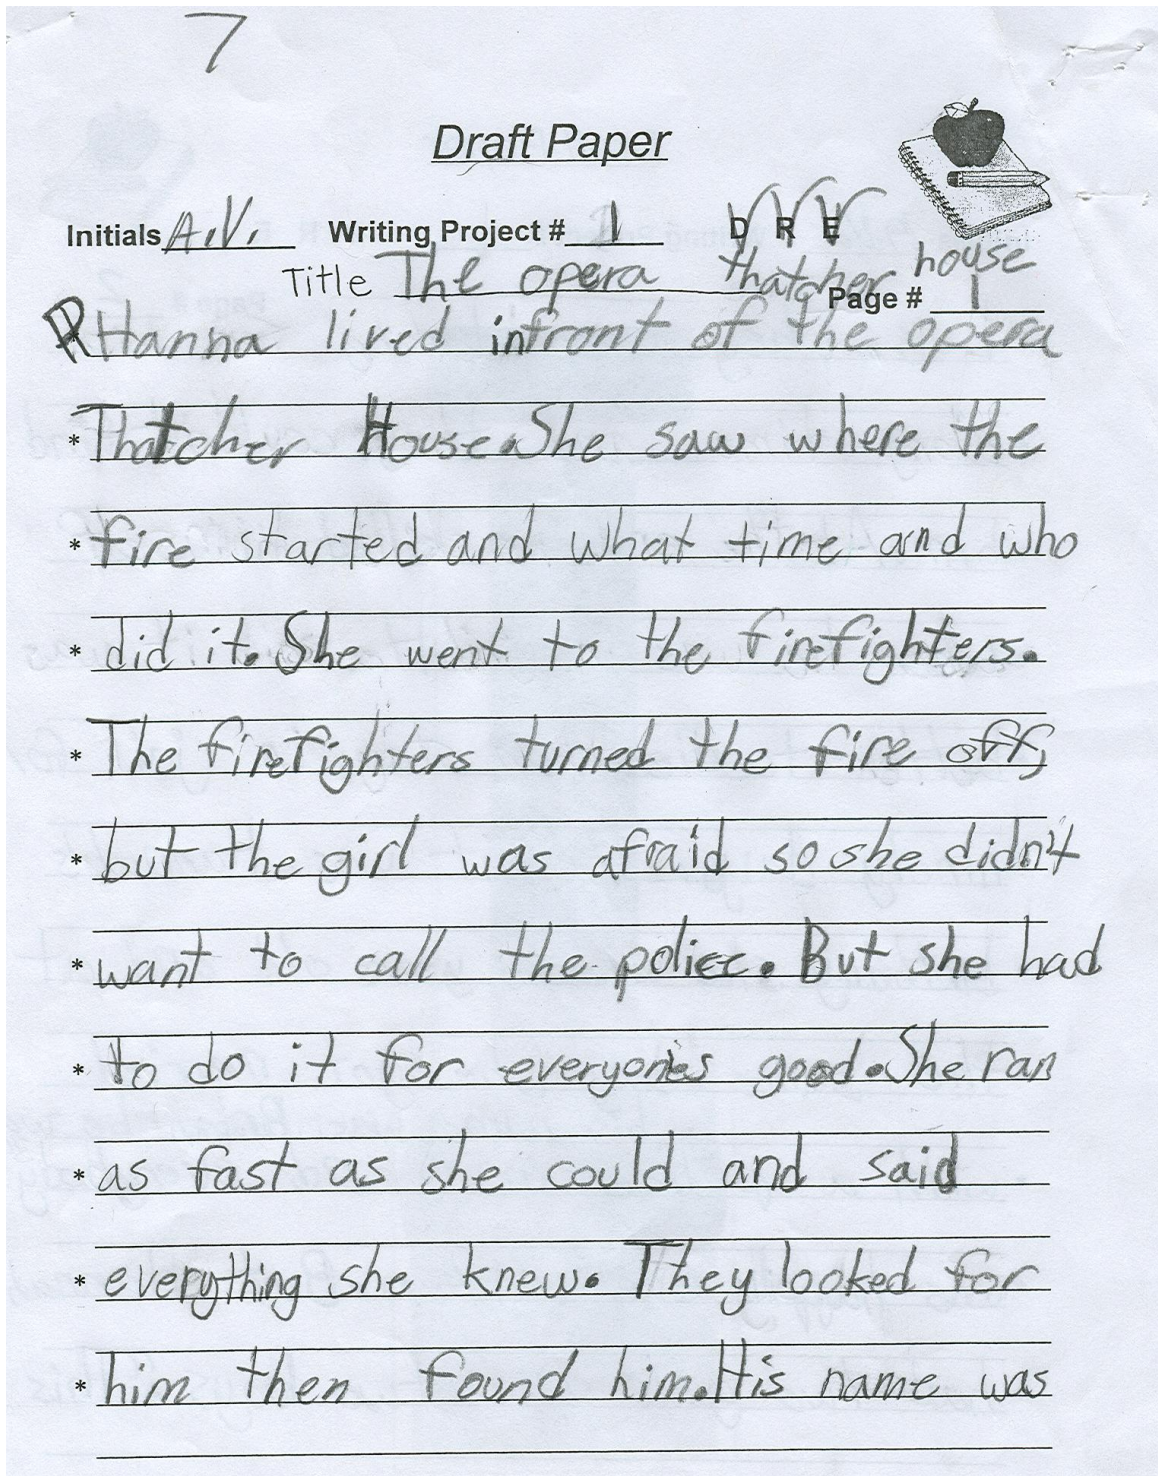 7
Draft Paper
Initials A.V. Writing Project # 1 D R E
Title The opera thatcher house
Page # 1
P Hanna lived infront of the opera
*Thatcher House. She saw where the
*fire started and what time and who
*did it. She went to the firefighters.
*The firefighters turned the fire off,
*but the girl was afraid so she didn't
*want to call the police. But she had
*to do it for everyone's good. She ran
*as fast as she could and said
*everything she knew. They looked for
*him then found him. His name was